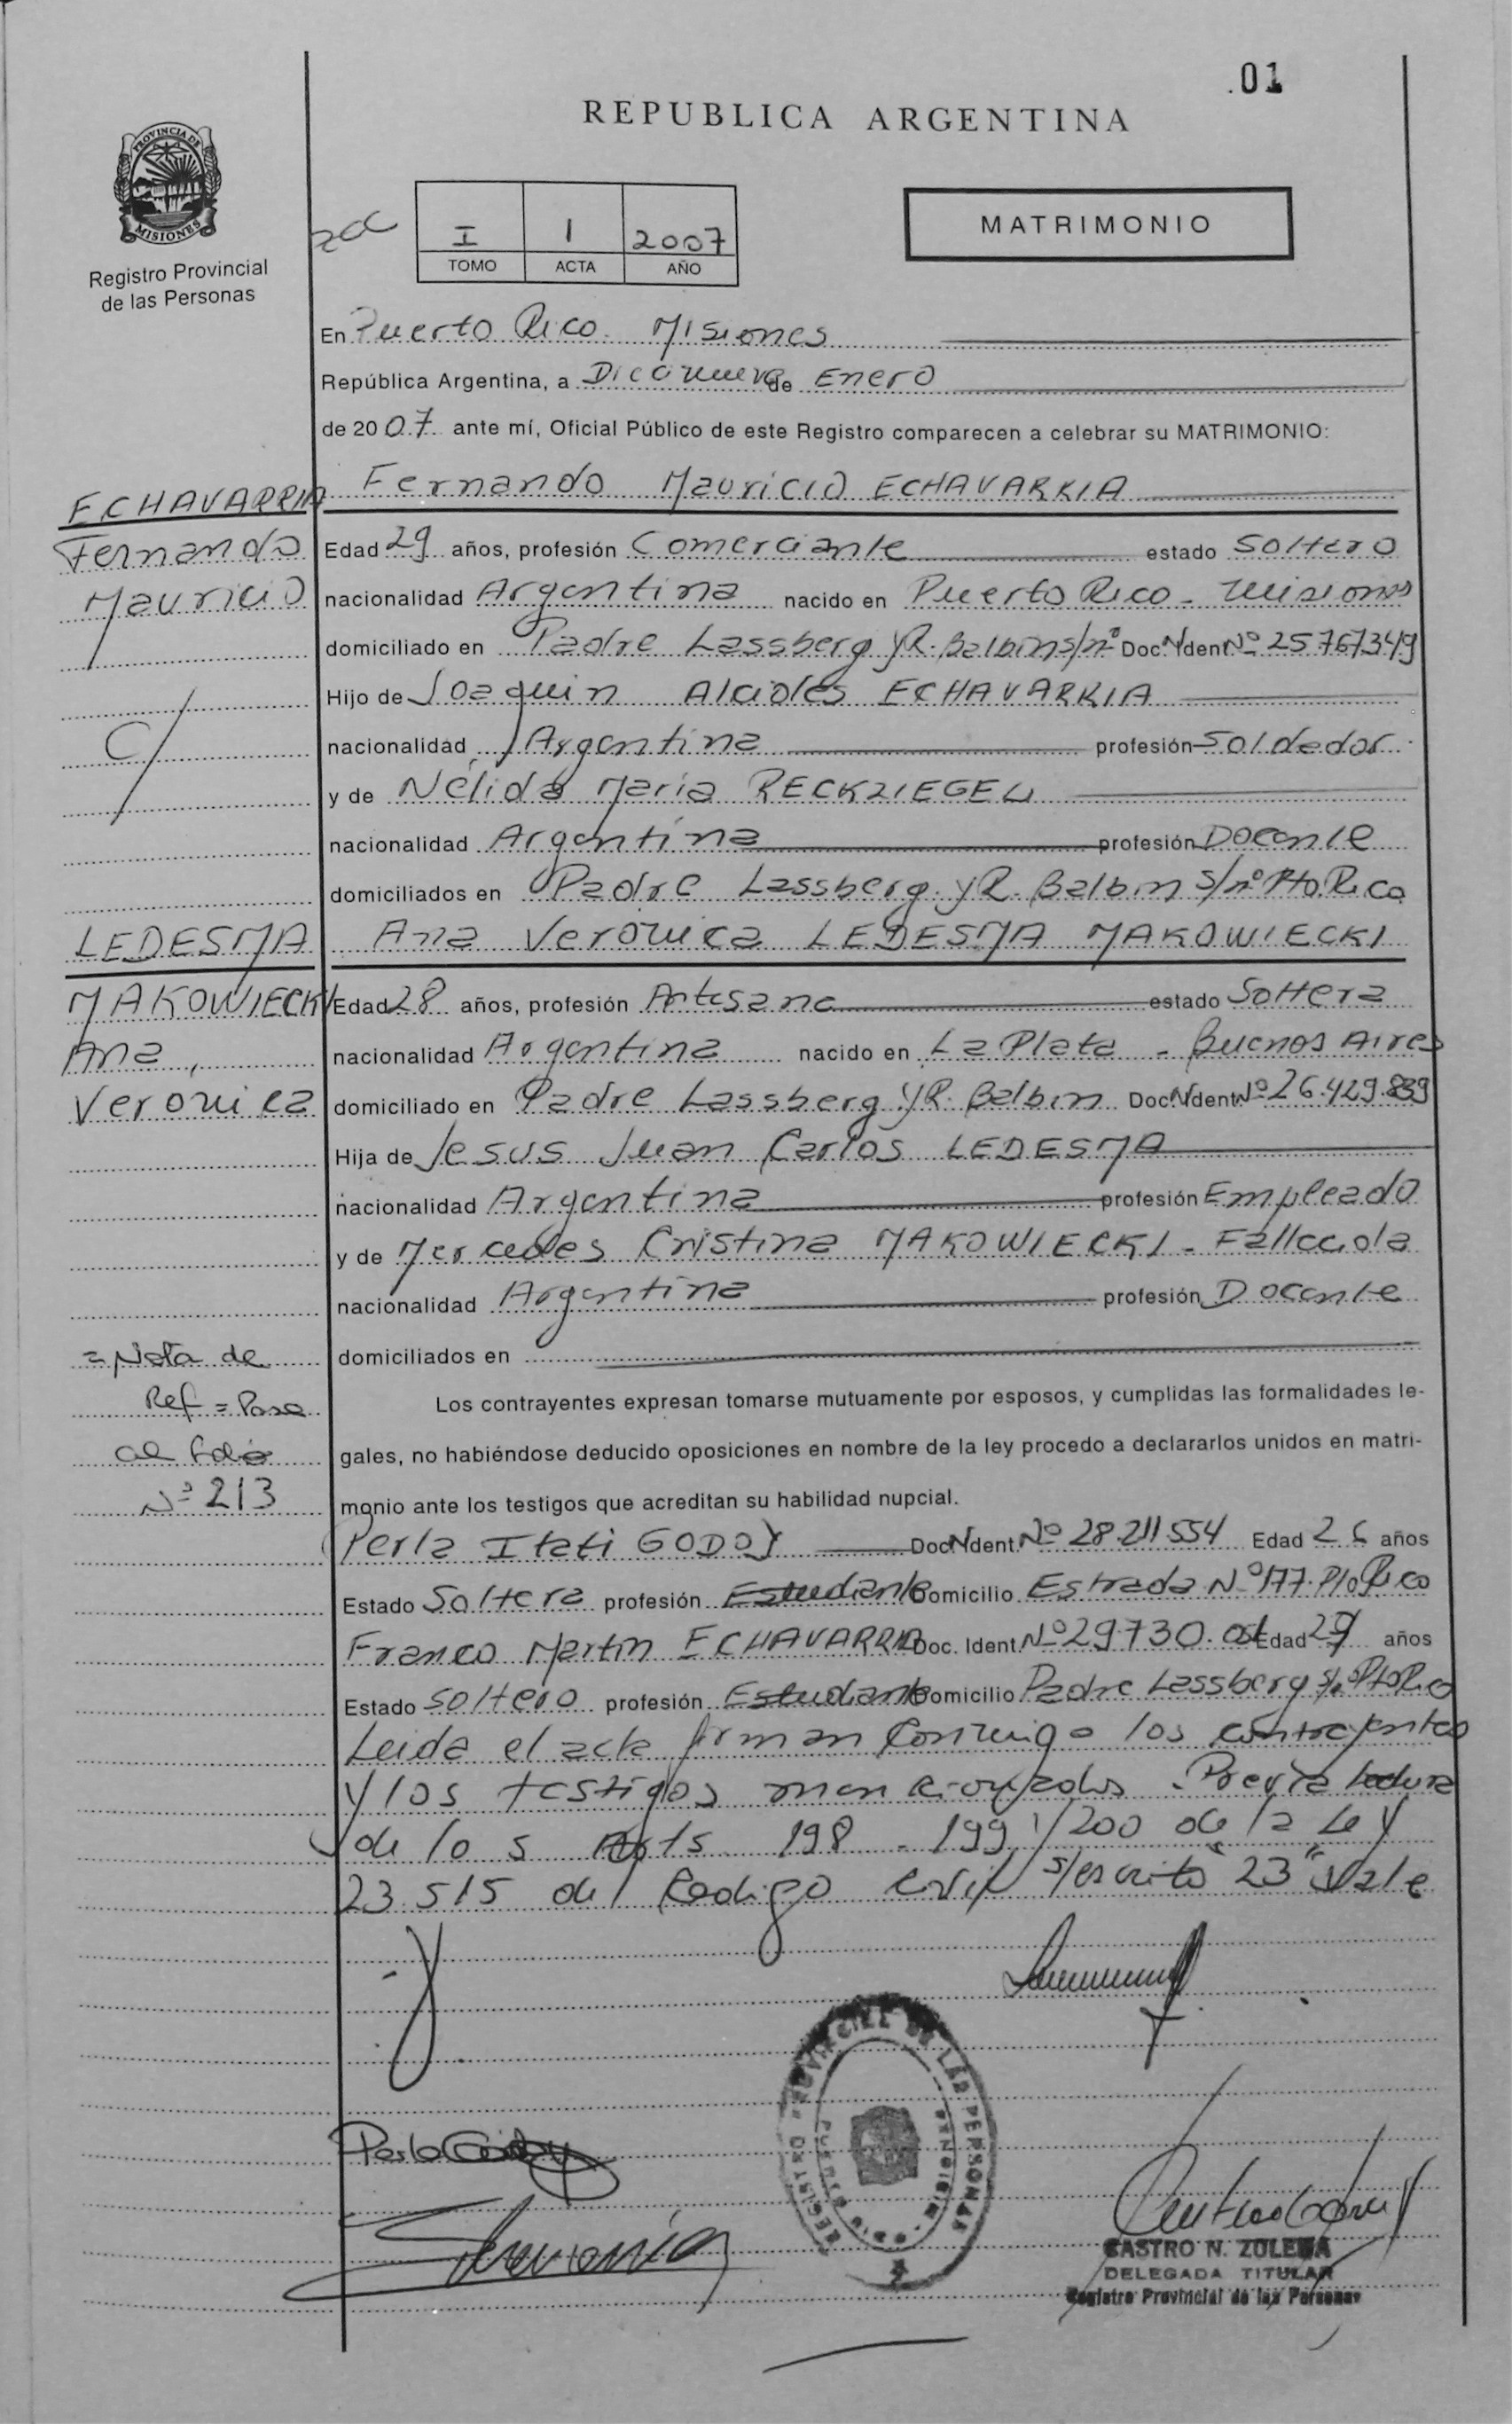 .01
REPUBLICA ARGENTINA
PROVINCIA DE
MISIONES
Registro Provincial
de las Personas
I 1 2007
TOMO ACTA AÑO
MATRIMONIO
En Puerto Rico. Misiones
República Argentina, a Diecinueve de Enero
de 2007 ante mí, Oficial Público de este Registro comparecen a celebrar su MATRIMONIO:
Fernando Mauricio ECHAVARRIA
ECHAVARRIA
Fernando
Mauricio
C/
Edad 29 años, profesión Comerciante estado Soltero
nacionalidad Argentina nacido en Puerto Rico - Misiones
domiciliado en Padre Lassberg y R. Balbin s/nº Doc. Ident. Nº 25.767.349
Hijo de Joaquin Alcides ECHAVARRIA
nacionalidad Argentina profesión Soldador
y de Nélida Maria RECKZIEGEL
nacionalidad Argentina profesión Docente
domiciliados en Padre Lassberg y R. Balbin s/nº Pto. Rico
Ana Veronica LEDESMA MAKOWIECKI
LEDESMA
MAKOWIECKI
Ana,
Veronica
Edad 28 años, profesión Artesana estado Soltera
nacionalidad Argentina nacido en La Plata - Buenos Aires
domiciliado en Padre Lassberg y R. Balbin Doc. Ident. Nº 26.429.839
Hija de Jesus Juan Carlos LEDESMA
nacionalidad Argentina profesión Empleado
y de Mercedes Cristina MAKOWIECKI - Fallecida
nacionalidad Argentina profesión Docente
domiciliados en
= Nota de
Ref = Pasa
al folio
Nº 213
Los contrayentes expresan tomarse mutuamente por esposos, y cumplidas las formalidades le-
gales, no habiéndose deducido oposiciones en nombre de la ley procedo a declararlos unidos en matri-
monio ante los testigos que acreditan su habilidad nupcial.
Perla Itati GODOY Doc. Ident. Nº 28.211.554 Edad 26 años
Estado Soltera profesión Estudiante Domicilio Estrada Nº 177. Pto Rico
Franco Martin ECHAVARRIA Doc. Ident. Nº 29.730. Edad años
Estado Soltero profesión Estudiante Domicilio Padre Lassberg s/nº Pto Rico
Leida el acta firman Conmigo los contrayentes
y los testigos mencionados. Previa lectura
de los Arts. 198 - 199 y 200 de la Ley
23.515 del Codigo Civil s/escrito "23" vale
Perla Godoy
REGISTRO PROVINCIAL DE LAS PERSONAS
PUERTO RICO MISIONES
CASTRO N. ZULEMA
DELEGADA TITULAR
Registro Provincial de las Personas